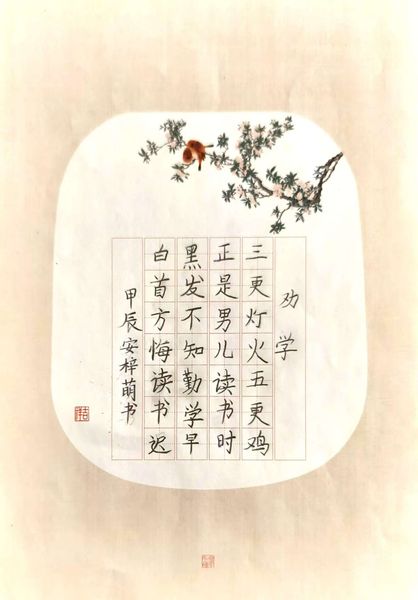 劝学
三更灯火五更鸡
正是男儿读书时
黑发不知勤学早
白首方悔读书迟
甲辰安梓萌书